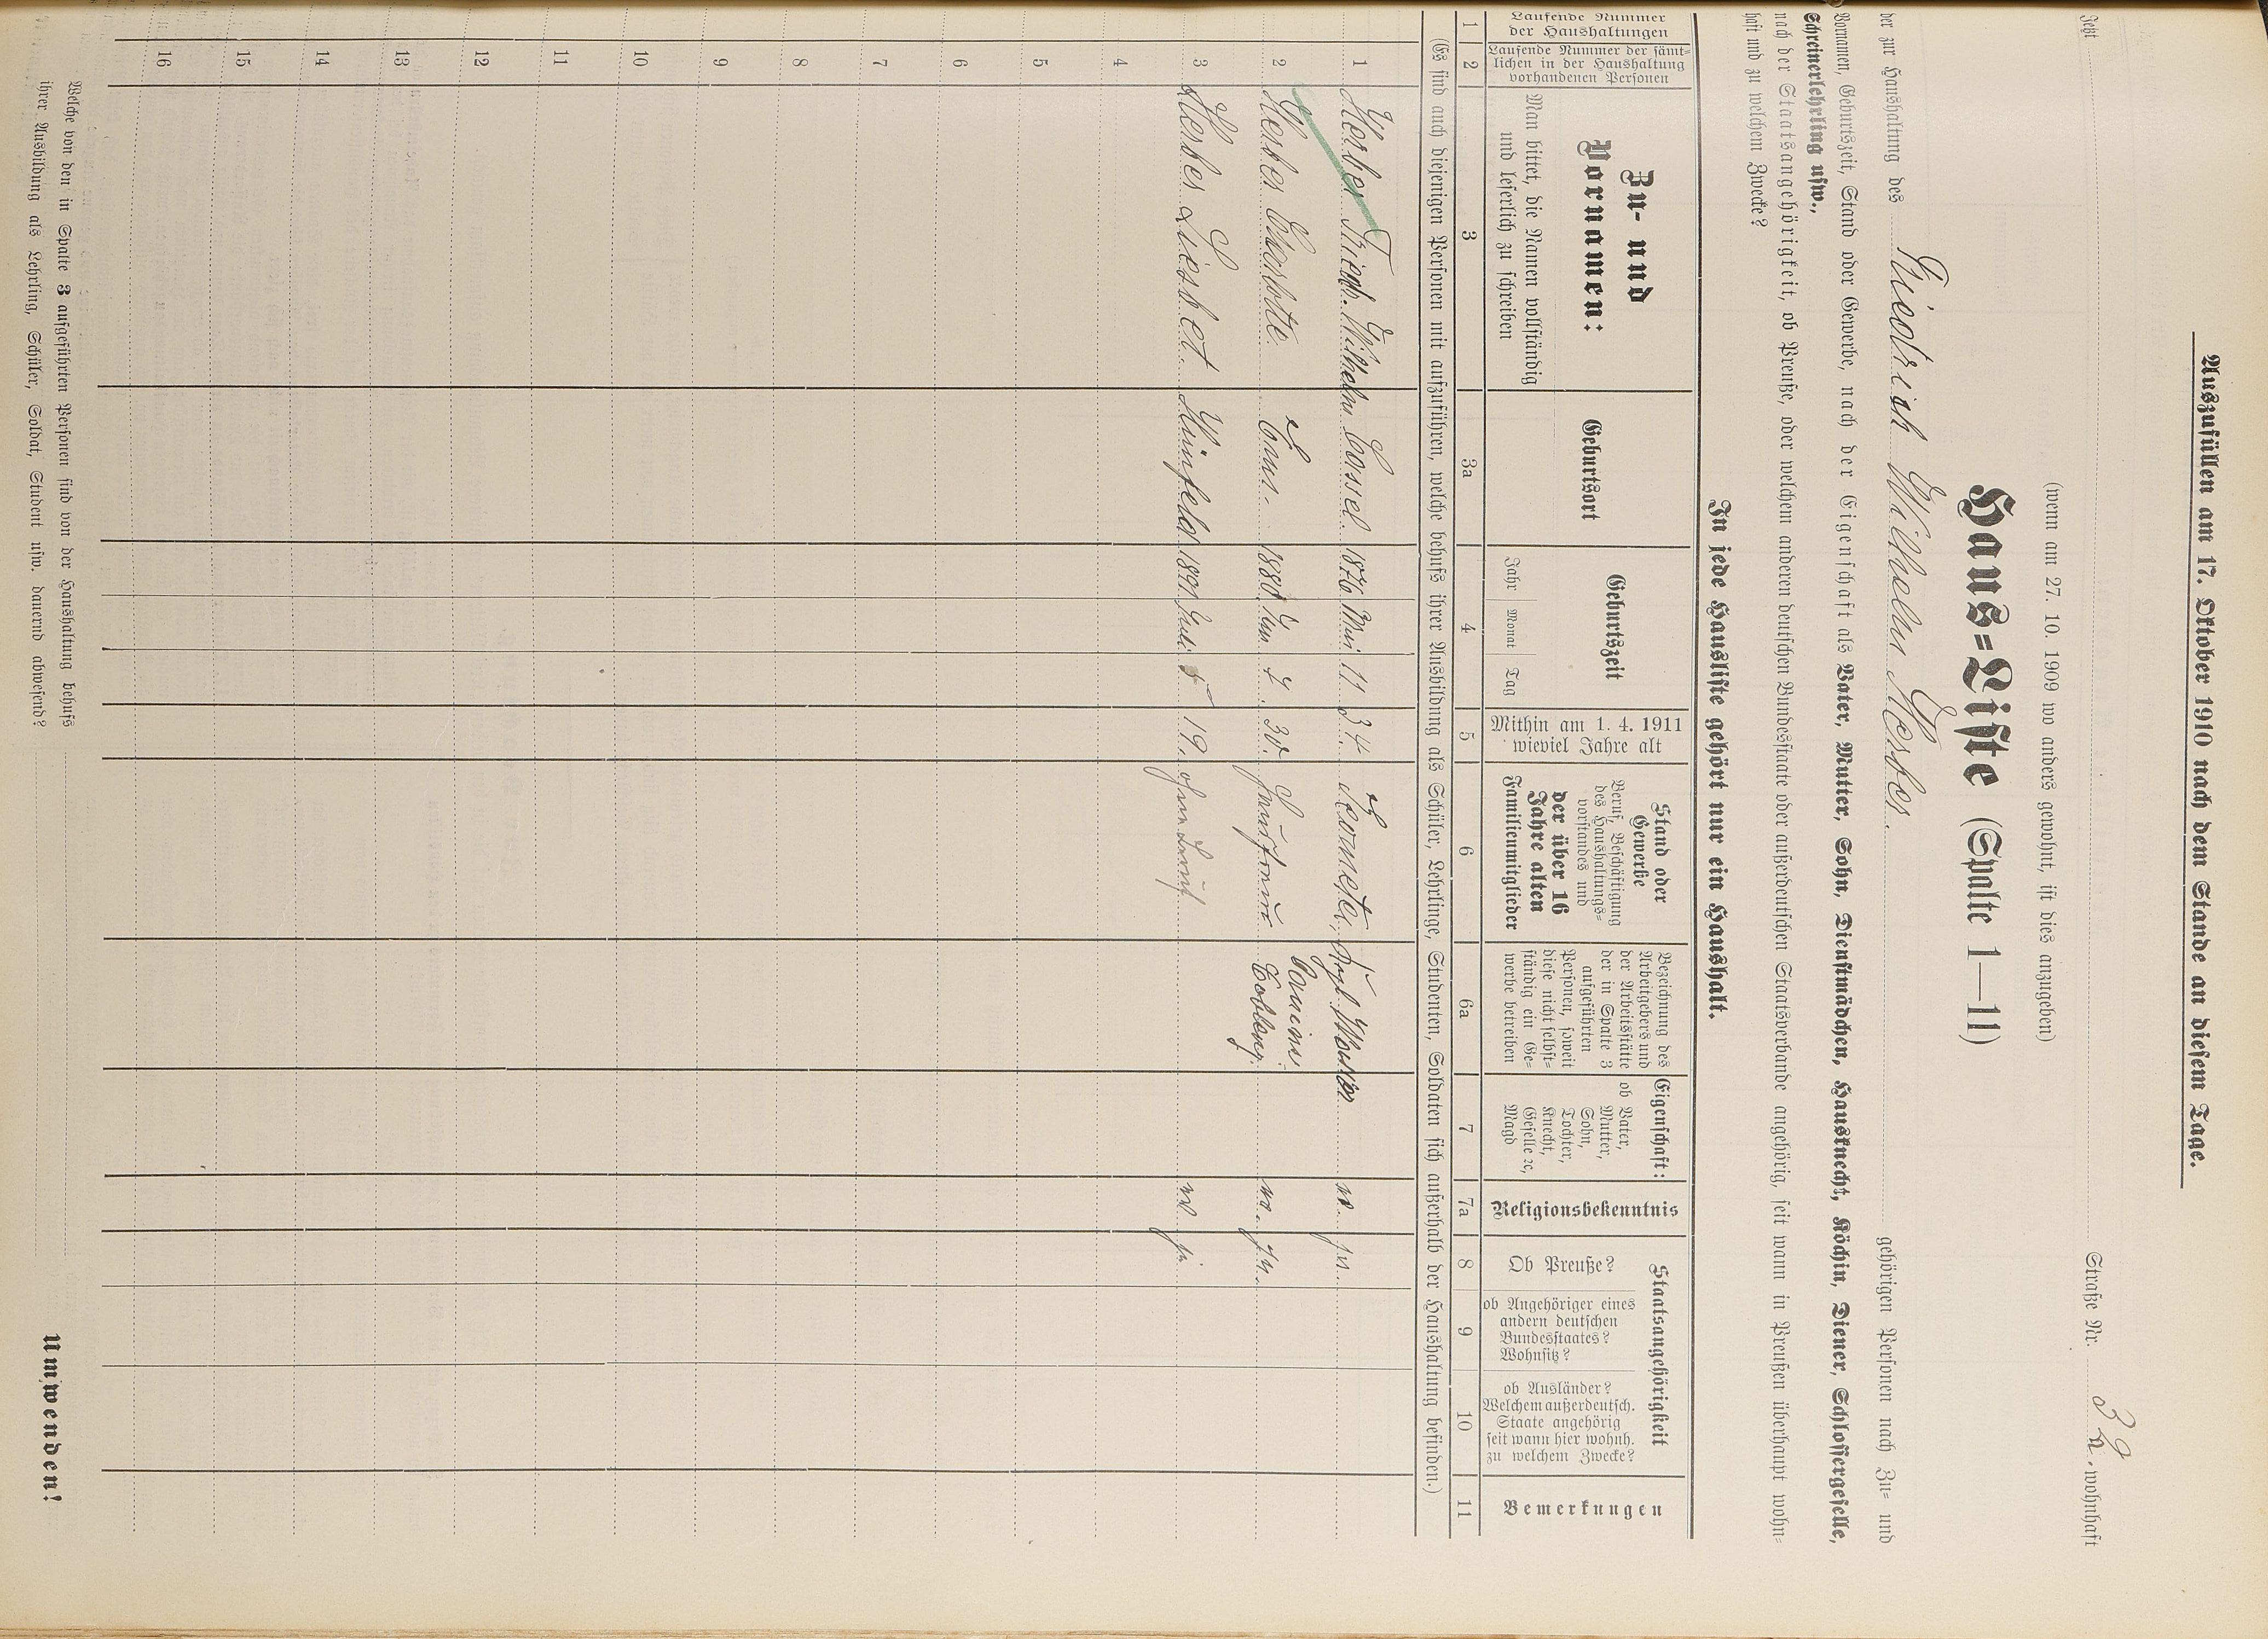 Auszufüllen am 17. Oktober 1910 nach dem Stande an diesem Tage.
Jetzt Straße Nr. 39 a, wohnhaft
(wenn am 27. 10. 1909 wo anders gewohnt, ist dies anzugeben)
Haus=Liste (Spalte 1—11)
der zur Haushaltung des Friedrich Wilhelm gehörigen Personen nach Zu= und
Vornamen, Geburtszeit, Stand oder Gewerbe, nach der Eigenschaft als Vater, Mutter, Sohn, Dienstmädchen, Hausknecht, Köchin, Diener, Schlossergeselle,
Schreinerlehrling usw.,
nach der Staatsangehörigkeit, ob Preuße, oder welchen anderen deutschen Bundesstaate oder außerdeutschen Staatsverbande angehörig, seit wann in Preußen überhaupt wohn=
haft und zu welchem Zwecke?
In jede Hausliste gehört nur ein Haushalt.
Laufende Nummer
der Haushaltungen
Laufende Nummer der sämt=
lichen in der Haushaltung
vorhandenen Personen
Zu- und
Vornamen:
Man bittet, die Namen vollständig
und leserlich zu schreiben
Geburtsort
Geburtszeit
Jahr Monat Tag
Mithin am 1. 4. 1911
wieviel Jahre alt
Stand oder
Gewerbe
Beruf, Beschäftigung
des Haushaltungs=
vorstandes und
der über 16
Jahre alten
Familienmitglieder
Bezeichnung des
Arbeitgebers und
der Arbeitsstätte
der in Spalte 3
aufgeführten
Personen, soweit
diese nicht selbst=
ständig ein Ge=
werbe betreiben
Eigenschaft:
ob Vater,
Mutter,
Sohn,
Tochter,
Knecht,
Geselle ec,
Magd
Religionsbekenntnis
Staatsangehörigkeit
Ob Preuße?
ob Angehöriger eines
andern deutschen
Bundesstaates?
Wohnsitz?
ob Ausländer?
Welchem außerdeutsch.
Staate angehörig
seit wann hier wohnh.
zu welchem Zwecke?
Bemerkungen
1 2 3 3a 4 5 6 6a 7 7a 8 9 10 11
(Es sind auch diejenigen Personen mit aufzuführen, welche behufs ihrer Ausbildung als Schüler, Lehrlinge, Studenten, Soldaten sich außerhalb der Haushaltung befinden.)
1 Friedr. Wilhelm Cassel 1876 Mai 11. 34
2 Charlotte. 1880 4. 30.
3 Liesbet. Hünfeld 1891 Juli 5 19. ohne Beruf
4
5
6
7
8
9
10
11
12
13
14
15
16
Welche von den in Spalte 3 aufgeführten Personen sind von der Haushaltung behufs
ihrer Ausbildung als Lehrling, Schüler, Soldat, Student usw. dauernd abwesend?
Umwenden!